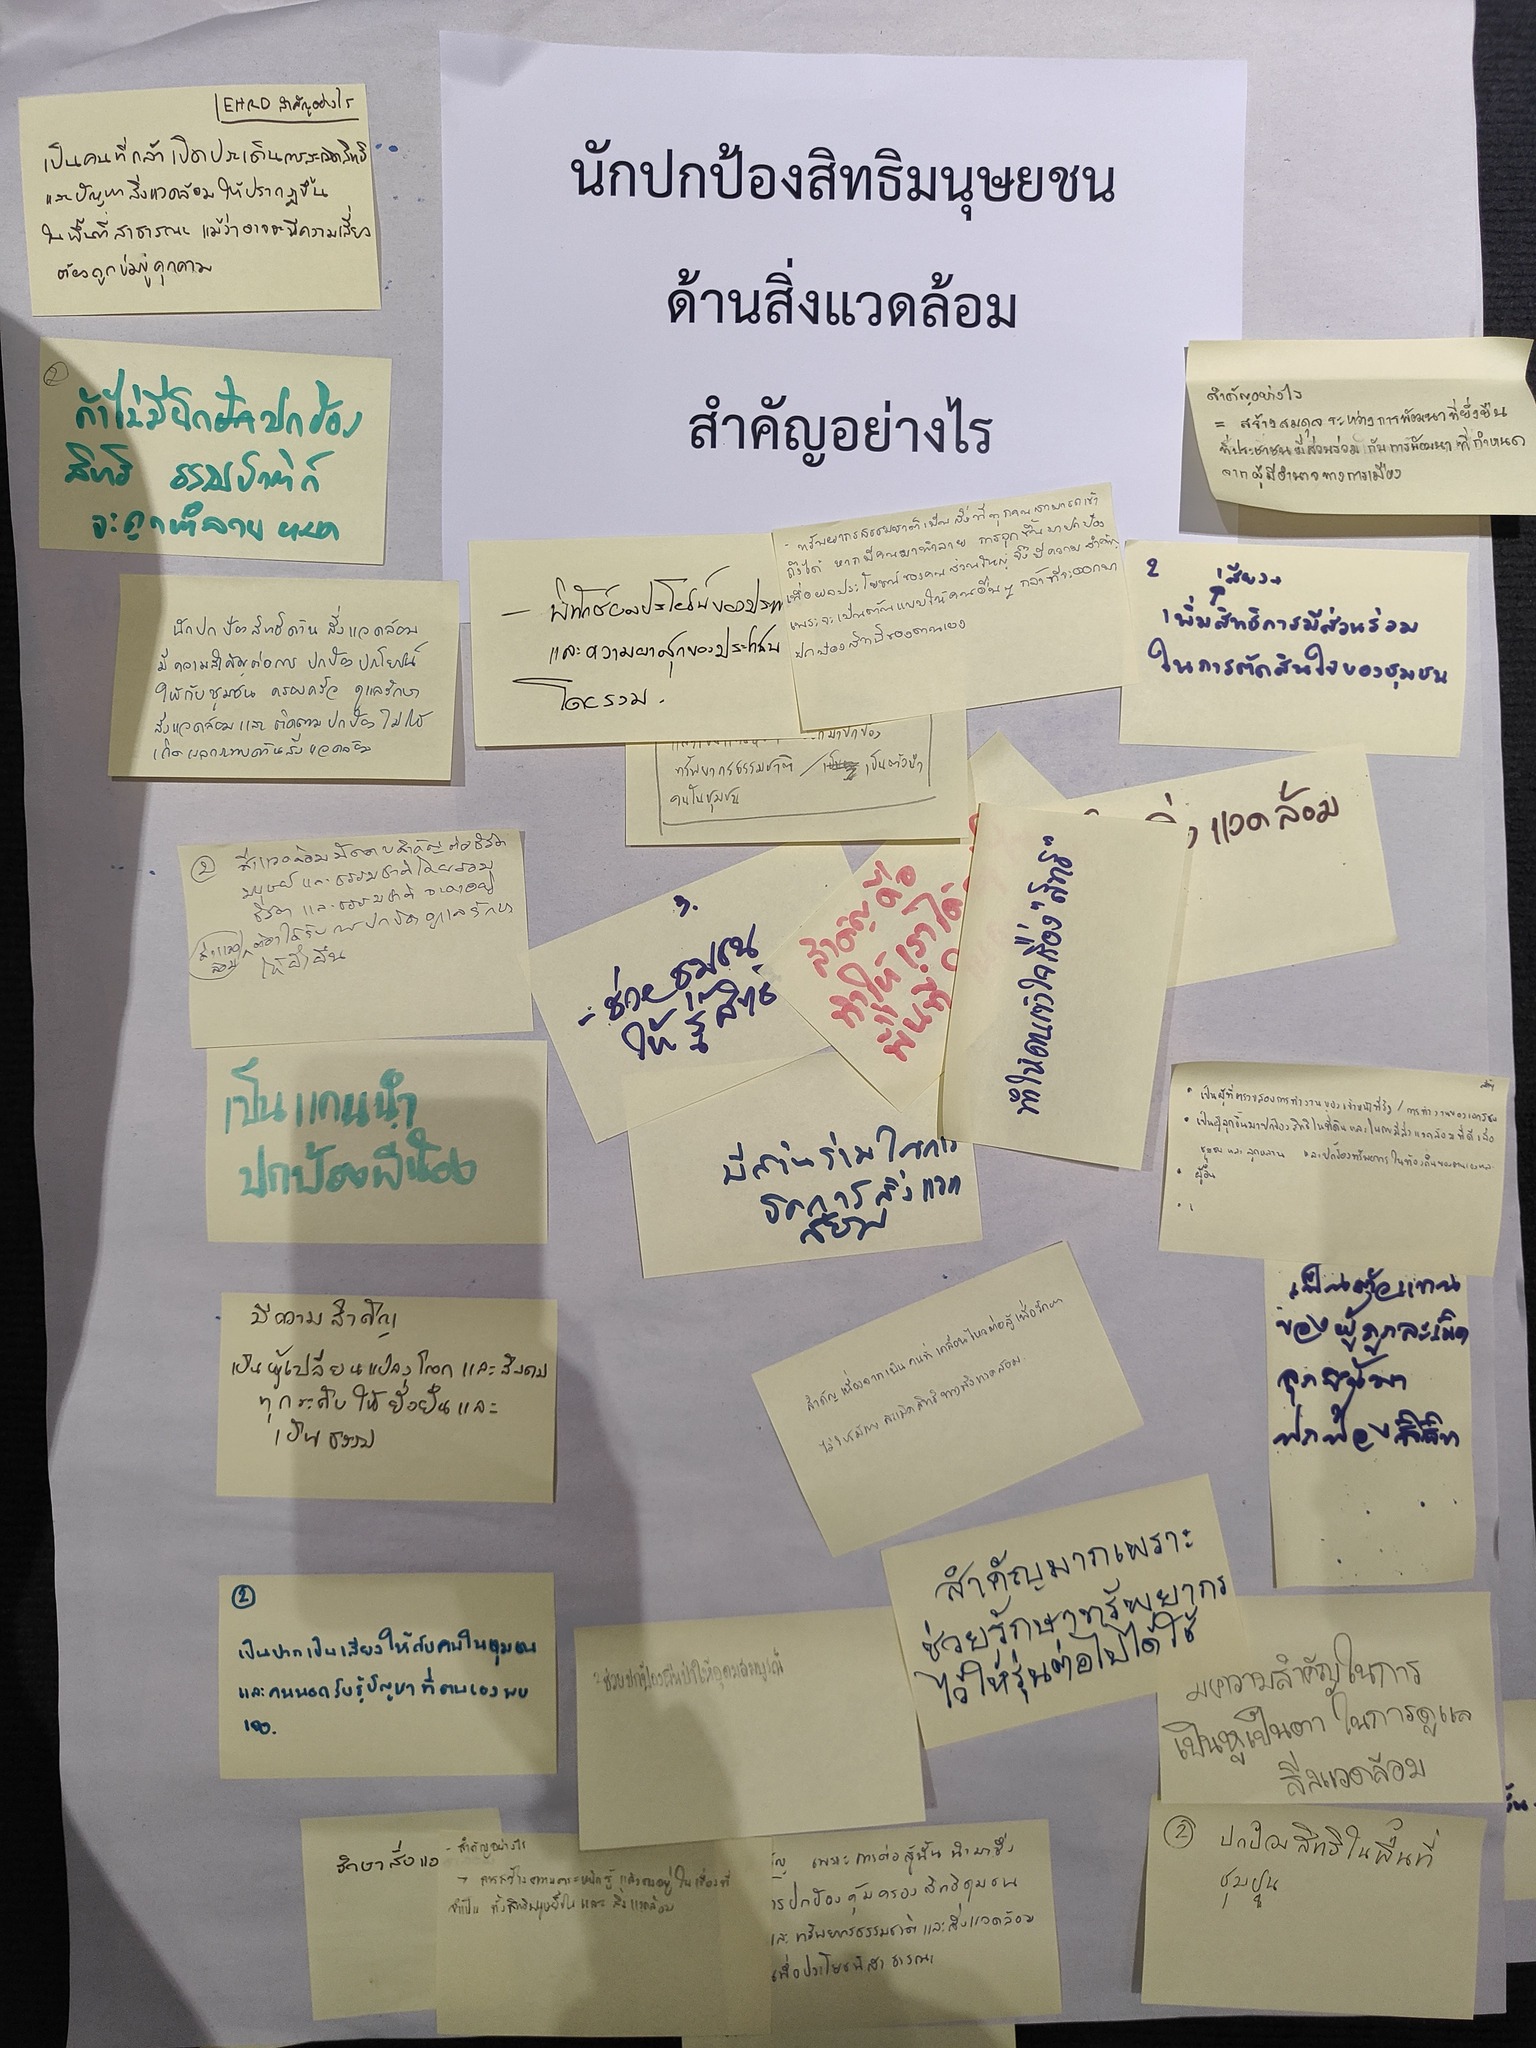 นักปกป้องสิทธิมนุษยชน
ด้านสิ่งแวดล้อม
สำคัญอย่างไร
EHRD สำคัญอย่างไร
เป็นคนที่กล้าเปิดประเด็นการละเมิดสิทธิ
และปัญหาสิ่งแวดล้อมให้ปรากฏขึ้น
ในพื้นที่สาธารณะ แม้ว่าอาจจะมีความเสี่ยง
ต้องถูกข่มขู่คุกคาม
2
ถ้าไม่มีนักปกป้อง
สิทธิ ธรรมชาติก็
จะถูกทำลายหมด
นักปกป้องสิทธิด้านสิ่งแวดล้อม
มีความสำคัญต่อการปกป้อง
ให้กับชุมชน ครอบครัว ดูแลรักษา
สิ่งแวดล้อมและติดตามปกป้องไม่ให้
เกิดผลกระทบด้านสิ่งแวดล้อม
2
สิ่งแวดล้อมมีความสำคัญต่อชีวิต
มนุษย์และธรรมชาติโดยรวม
ชีวิตและธรรมชาติจะคงอยู่
ต้องได้รับการปกป้องดูแลรักษา
สิ่งแวดล้อม
ให้ยั่งยืน
เป็นแกนนำ
ปกป้องพี่น้อง
มีความสำคัญ
เป็นผู้เปลี่ยนแปลงโลกและสังคม
ทุกระดับให้ยั่งยืนและ
เป็นธรรม
2
เป็นปากเป็นเสียงให้กับคนในชุมชน
และคนนอกรับรู้ปัญหาที่ตนเองพบ
เจอ.
รักษาสิ่งแว
- สำคัญอย่างไร
→ การสร้างความตระหนักรู้
ทั้งสิทธิมนุษยชนและสิ่งแวดล้อม
- พิทักษ์ผลประโยชน์ของประ
และความผาสุกของประชาชน
โดยรวม.
- ทรัพยากรธรรมชาติเป็นสิ่งที่ทุกคนสามารถเข้า
ถึงได้ หากมีคนมาทำลาย การลุกขึ้นมาปกป้อง
เพื่อผลประโยชน์ของคนส่วนใหญ่ จึงมีความสำคัญ
เพราะจะเป็นต้นแบบให้คนอื่นๆ กล้าที่จะออกมา
ปกป้องสิทธิของตนเอง
ทรัพยากรธรรมชาติ / เป็นตัวนำ
คนในชุมชน
3.
- ช่วยชุมชน
ให้รู้สิทธิ
สำคัญคือ
ทำให้เราได้
ทำให้คนเข้าใจเรื่อง "สิทธิ"
สิ่งแวดล้อม
มีส่วนร่วมในการ
จัดการสิ่งแวด
ล้อม
สำคัญ เนื่องจากเป็นคนที่เคลื่อนไหวต่อสู้เพื่อรักษา
ไม่ให้มีการละเมิดสิทธิทางสิ่งแวดล้อม
สำคัญมากเพราะ
ช่วยรักษาทรัพยากร
ไว้ให้รุ่นต่อไปได้ใช้
- ช่วยปกป้องผืนป่าให้อุดมสมบูรณ์
เพราะการต่อสู้นั้น นำมาซึ่ง
ารปกป้องคุ้มครองสิทธิชุมชน
และทรัพยากรธรรมชาติและสิ่งแวดล้อม
เพื่อประโยชน์สาธารณะ
สำคัญอย่างไร
= สร้างสมดุลระหว่างการพัฒนาที่ยั่งยืน
ที่ประชาชนมีส่วนร่วม กับการพัฒนาที่กำหนด
จากผู้มีอำนาจทางการเมือง
2
เสียง
เพิ่มสิทธิการมีส่วนร่วม
ในการตัดสินใจของชุมชน
• เป็นผู้ที่ตรวจสอบการทำงานของเจ้าหน้าที่รัฐ / การทำงานของเอกชน
• เป็นผู้ลุกขึ้นมาปกป้องสิทธิในที่ดินและในการมีสิ่งแวดล้อมที่ดี เพื่อ
ชุมชน และ ลูกหลาน และปกป้องทรัพยากรในท้องถิ่นของตนเองและ
ผู้อื่น
เป็นตัวแทน
ของผู้ถูกละเมิด
ลุกขึ้นมา
ปกป้องสิทธิ
มีความสำคัญในการ
เป็นหูเป็นตา ในการดูแล
สิ่งแวดล้อม
2
ปกป้องสิทธิในพื้นที่
ชุมชน